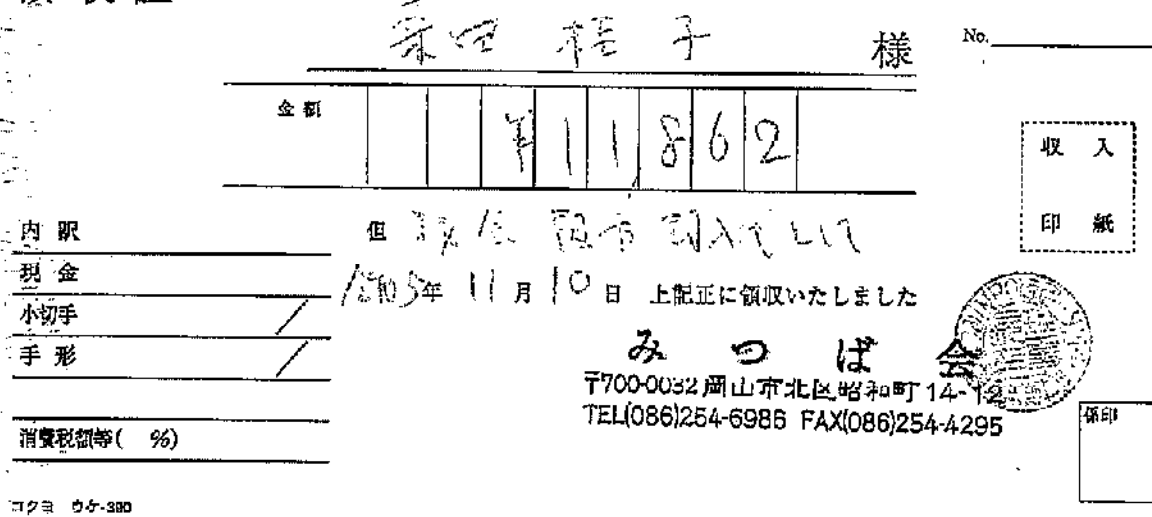 様 No.
金額 ¥11,862
収入
印紙
内訳
現金
小切手
手形
消費税額等( %)
但 購入代として
令和5年 11月10日 上記正に領収いたしました
みつば会
〒700-0032 岡山市北区昭和町14-12
TEL(086)254-6986 FAX(086)254-4295
係印
コクヨ ウケ-390